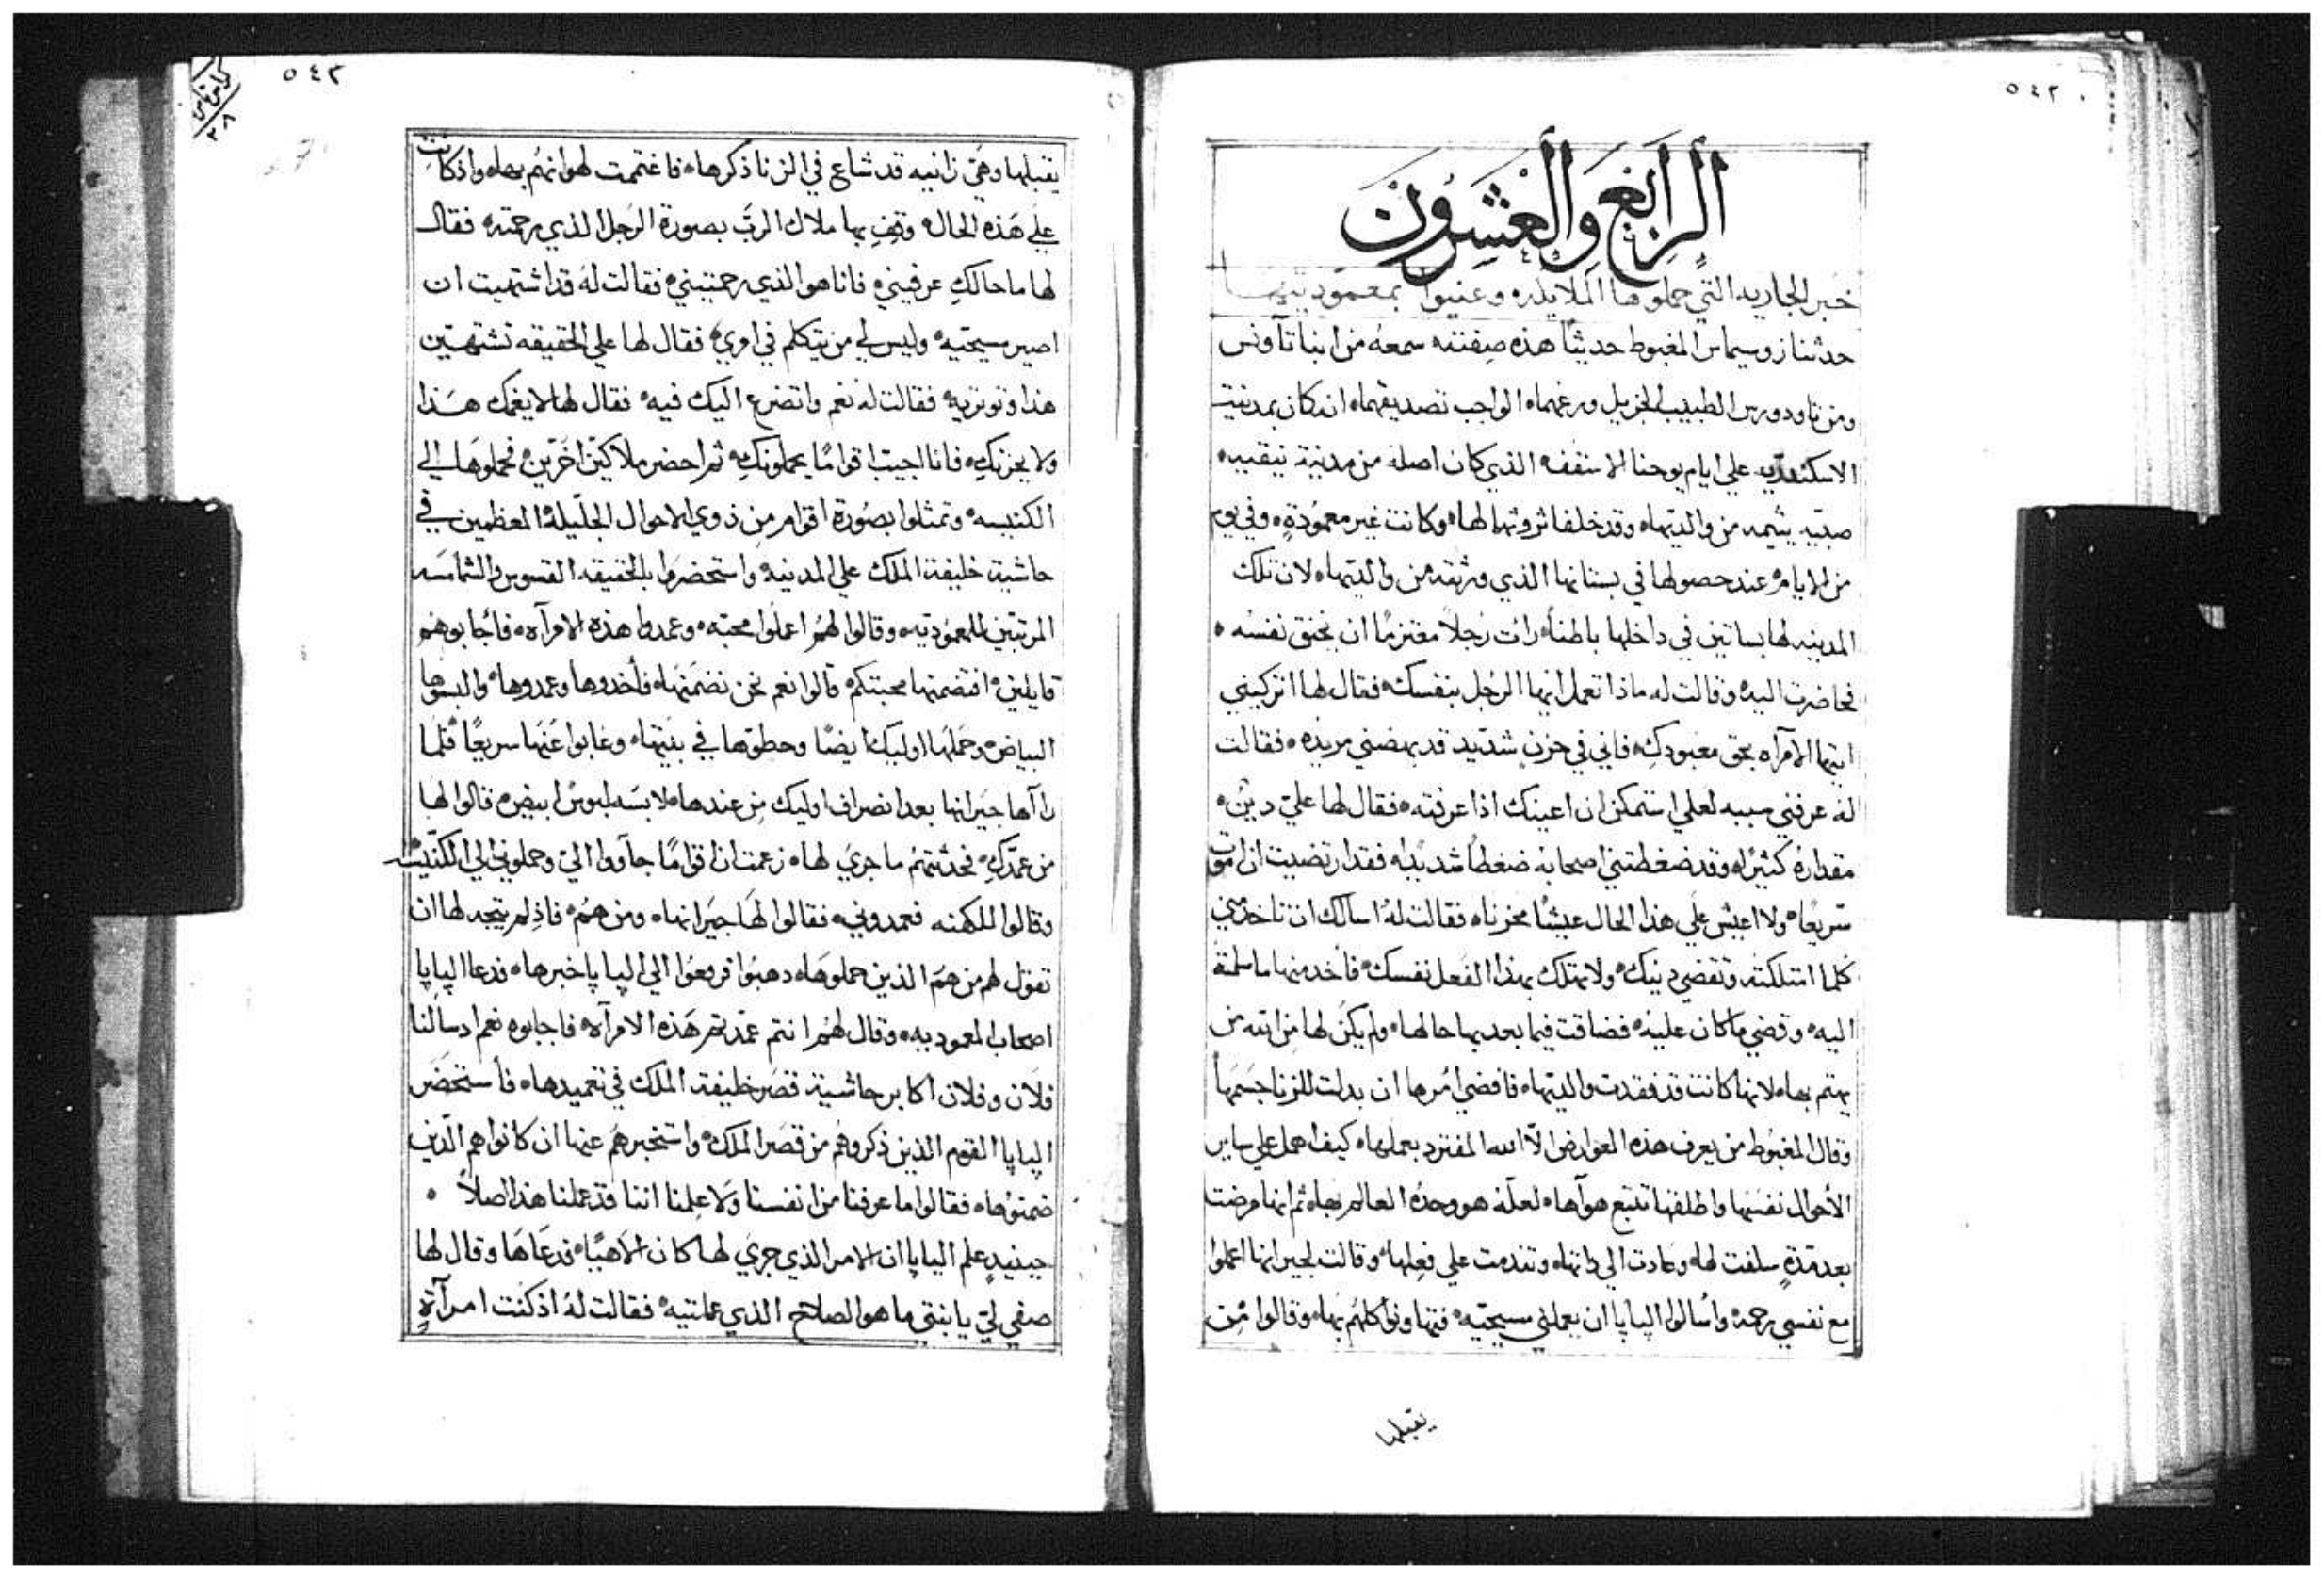 ٥٤٢
الرابع والعشرون
خبر الجاريه التي حملوها الملايكه وعنيوا بمعموديتها
حدثنا زوسيماس المغبوط حديثًا هذه صفته سمعه من انبا تاونس
ومن تاودورس الطبيب الجزيل ورعهما الواجب تصديقهما انه كان بمدينة
الاسكندريه علي ايام يوحنا الاسقف الذي كان اصله من مدينة نيقيه
صبيه يتيمه من والديها وقد خلفا ثروتهما لها وكانت غير معموذةٍ وفي يوم
من الايام عند حصولها في بستانها الذي ورثته من والديها لان تلك
المدينه لها بساتين في داخلها باطنًا رات رجلًا معتزمًا ان يخنق نفسه
فحاضرت اليه وقالت له ماذا تعمل ايها الرجل بنفسك فقال لها اتركيني
ايتها الامرآه بحق معبودكِ فاني في حزنٍ شديد قد بهضني مزيده فقالت
له عرفني سببه لعلي استمكن ان اعينك اذا عرفته فقال لها عليّ دين
مقداره كثيرًا وقد ضغطتني اصحابه ضغطًا شديدًا فقد ارتضيت ان اموت
سريعًا ولا اعيش علي هذا الحال عيشًا محزنًا فقالت له اسالك ان تاخذ مني
كلما امتلكته وتقضي دينك ولا تهلك بهذا الفعل نفسك فأخد منها ما سلمته
اليه وقضي ما كان عليه فضاقت فيما بعد بها حالها ولم يكن لها من
يهتم بها لانها كانت قد فقدت والديها فافضي امرها ان بدلت للزنا جسمها
وقال المغبوط من يعرف هذه العوارض الّا الله المفترد بعملها كيف اهمل علي ساير
الأحوال نفسها واطلقها تتبع هوآها لعلّه هو وحده العالم بها ثم انها مرضت
بعد مدةٍ سلفت لها وعادت الي ذاتها وتندمت علي فعلها وقالت لجيرانها اعملوا
مع نفسي رحمة واسالوا البابا ان يعملني مسيحيّه فتهاونوا كلهم بها وقالوا من
يقبلها
٥٤٣
كراس خامس
٢٨
يقبلها وهي زانيه قد شاع في الزنا ذكرها فاغتمت لهوانهم بها واذ كانت
علي هذه الحال وقف بها ملاك الربّ بصورة الرجل الذي رحمته فقال
لها ما حالكِ عرفيني فانا هو الذي رحمتيني فقالت له قد اشتهيت ان
اصير مسيحيه وليس لي من يتكلم في امري فقال لها علي الحقيقه تشتهين
هذا وتوثريه فقالت له نعم واتضرع اليك فيه فقال لها لا يغمك هذا
ولا يحزنكِ فانا اجيب اقوامًا يحملونكِ ثم احضر ملاكين اخرين فحملوها الي
الكنيسه وتمثلوا بصورة اقوام من ذوي الاحوال الجليلة المعظمين في
حاشية خليفة الملك علي المدينة واستحضروا بالحقيقه القسوس والشمامسه
المرتبين للمعموديه وقالوا لهم اعملوا محبه وعمدوا هذه الامرآه فأجابوهم
قايلين افتضمنها محبتكم قالوا نعم نحن نضمنها فأخدوها وعمدوها والبسوها
البياض وحملها اوليك ايضًا وحطوها في بيتها وغابوا عنها سريعًا فلما
رآها جيرانها بعد انصراف اوليك من عندها لابسه لبوسًا ابيض قالوا لها
من عمّدكِ فحدثتهم ما جري لها زعمت ان اقوامًا جآووا اليّ وحملوني الي الكنيسه
وقالوا للكهنه فعمدوني فقالوا لها جيرانها ومن هم فاذ لم يتجه لها ان
تقول لهم من هم الذين حملوها دهبوا فرفعوا الي البابا خبرها فدعا البابا
اصحاب المعموديه وقال لهم انتم عمدتم هذه الامرآة فاجابوه نعم اذ سالنا
فلان وفلان اكابر حاشية قصر خليفة الملك في تعميدها فأستحضر
البابا القوم الذين ذكروهم من قصر الملك واستخبرهم عنها ان كانوا هم الذين
ضمنوها فقالوا ما عرفنا من انفسنا ولا علمنا اننا قد عملنا هذا اصلًا
حينيدٍ علم البابا ان الامر الذي جري لها كان الاهيًّا فدعاها وقال لها
صفي لي يا بنتي ما هو الصلاح الذي عملتيه فقالت له اذ كنت امرآةٍ